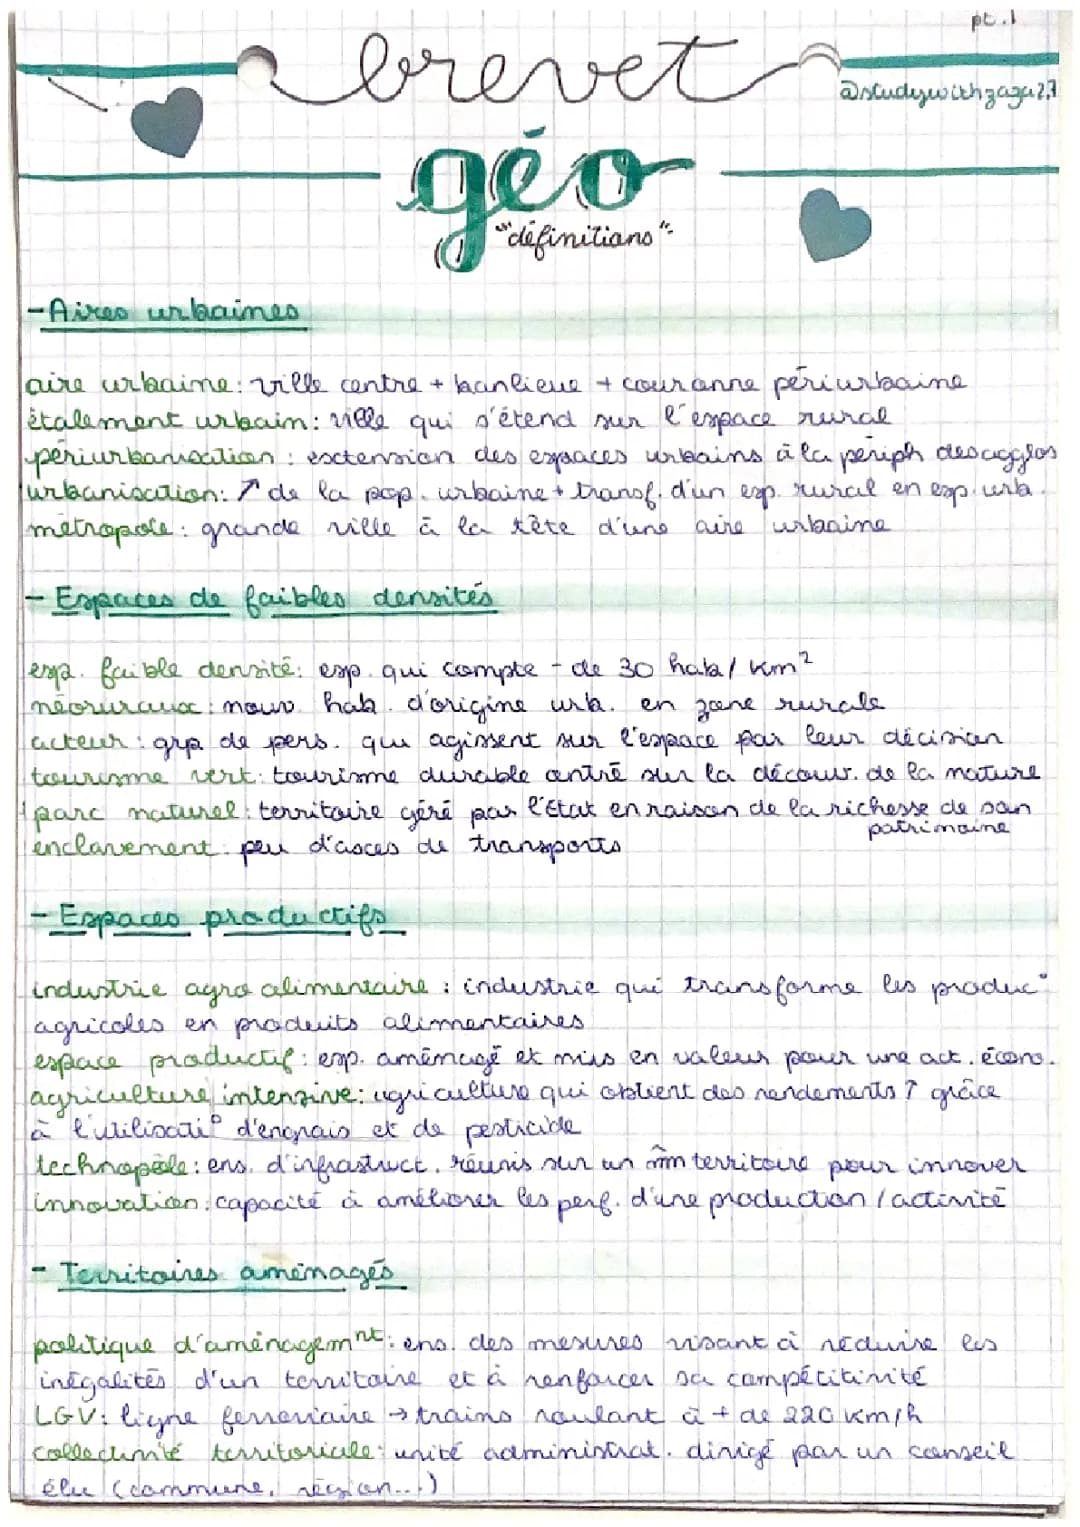 pt.1
brevet
@studywithzaga27
géo
"définitions"
-Aires urbaines
aire urbaine: ville centre + banlieue + couronne périurbaine
étalement urbain: ville qui s'étend sur l'espace rural
périurbanisation: extension des espaces urbains à la périph des agglos
urbanisation: ↗ de la pop. urbaine + transf. d'un esp. rural en esp. urb.
métropole: grande ville à la tête d'une aire urbaine
- Espaces de faibles densités
esp. faible densité: esp. qui compte - de 30 hab/km²
néoruraux: nouv hab. d'origine urb. en zone rurale
acteur: grp de pers. qui agissent sur l'espace par leur décision
tourisme vert: tourisme durable centré sur la découv. de la nature
parc naturel: territoire géré par l'Etat en raison de la richesse de son
patrimoine
enclavement: peu d'acces de transports
- Espaces productifs
industrie agro alimentaire: industrie qui transforme les produc°
agricoles en produits alimentaires
espace productif: esp. aménagé et mis en valeur pour une act. écono.
agriculture intensive: agriculture qui obtient des rendements ↑ grâce
à l'utilisati° d'engrais et de pesticide
technopôle: ens. d'infrastruct. réunis sur un mm territoire pour innover
innovation: capacité à améliorer les perf. d'une production/activité
- Territoires aménagés
politique d'aménagemnt: ens. des mesures visant à réduire les
inégalités d'un territoire et à renforcer sa compétitivité
LGV: ligne ferroviaire → trains roulant à + de 220 km/h
collectivité territoriale: unité administrat. dirigé par un conseil
élu (commune, région...)